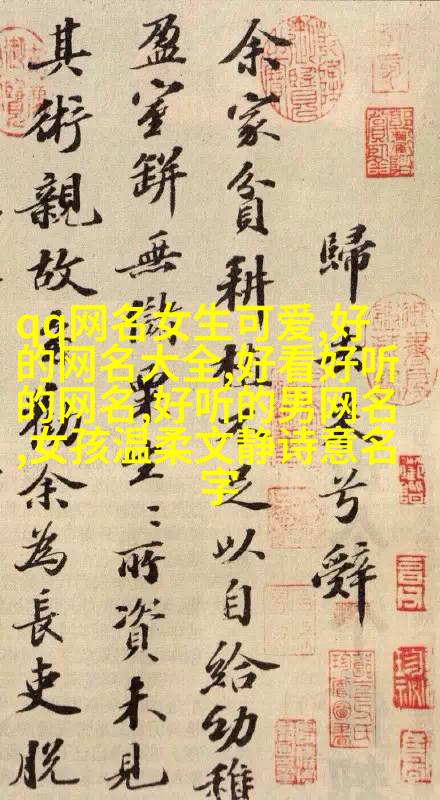 歸去來兮辭
余家貧耕植不足以自給幼稚
盈室缾無儲粟生〻所資未見
其術親故多勸余為長吏脫
qq网名女生可爱,好
的网名大全,好看好听
的网名,好听的男网名
,女孩温柔文静诗意名
字